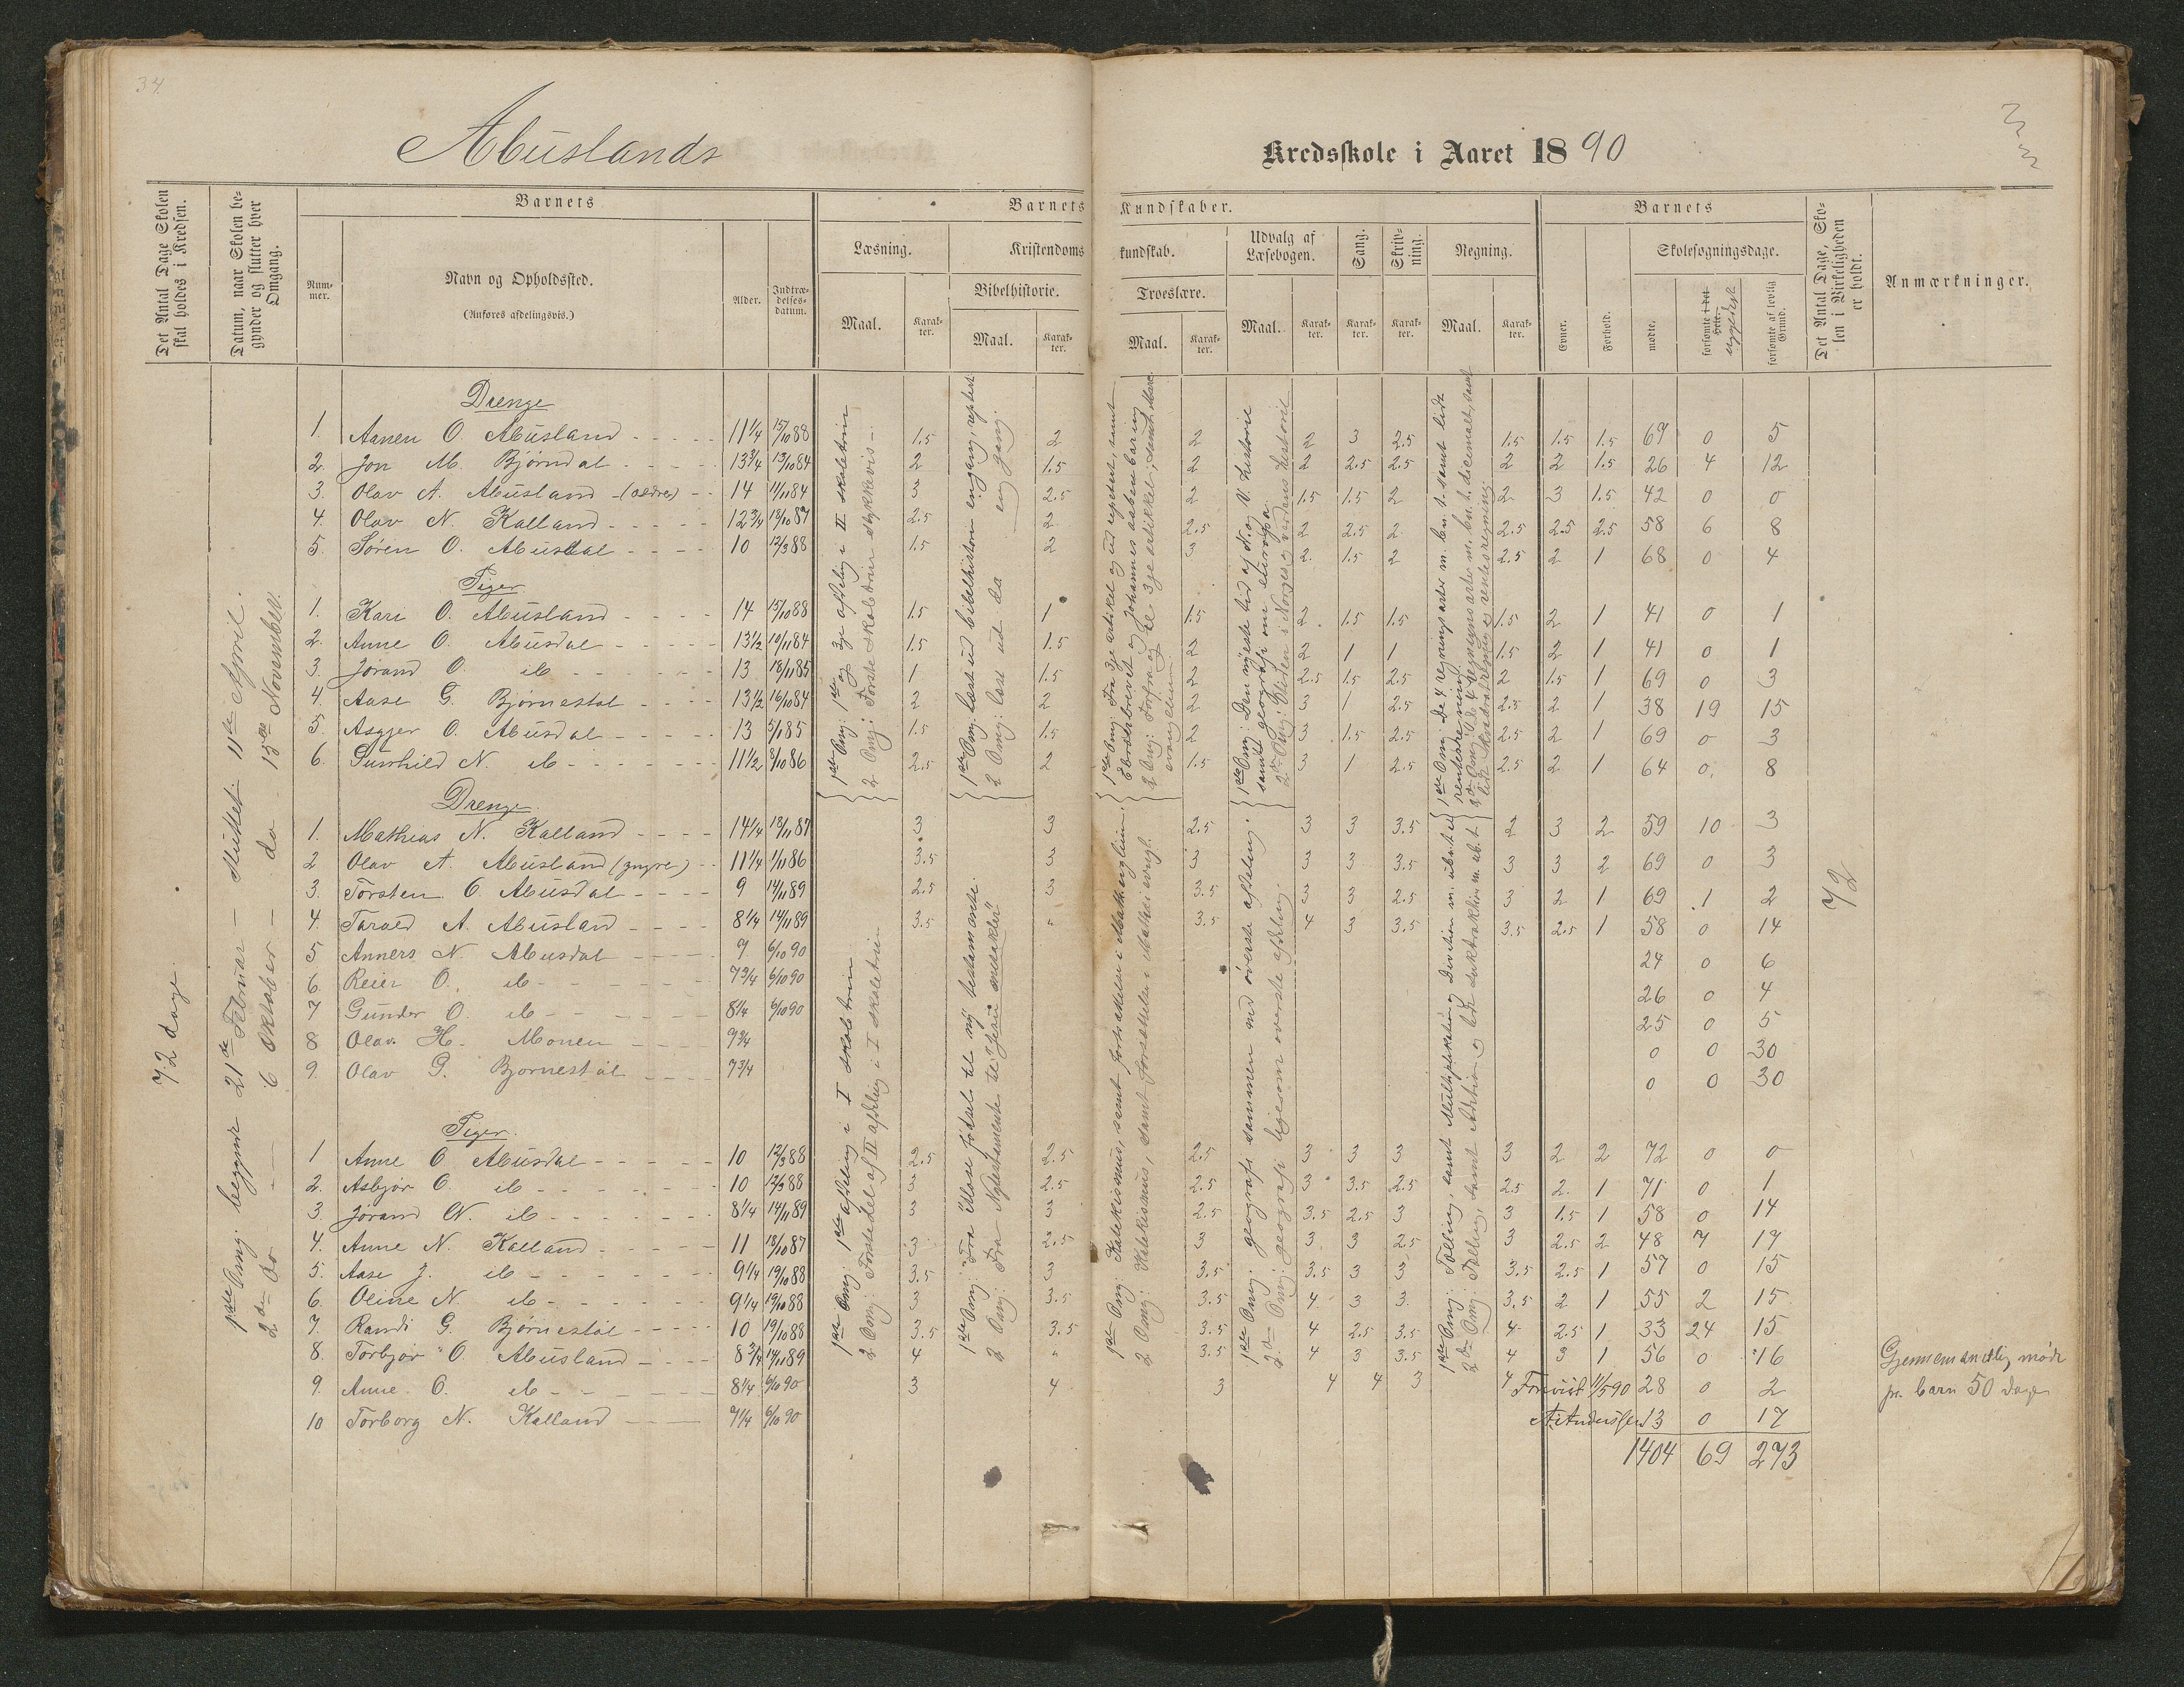 34
Abuslands
Kredsskole i Aaret 1890
Det Antal Dage Skolen skal holdes i Kredsen.
Datum, naar Skolen begynder og slutter hver Omgang.
Barnets
Nummer.
Navn og Opholdssted.
(Anføres afdelingsvis.)
Alder.
Indtrædelsesdatum.
Barnets Kundskaber.
Læsning.
Maal.
Karakter.
Kristendomskundskab.
Bibelhistorie.
Maal.
Karakter.
Troeslære.
Maal.
Karakter.
Udvalg af Læsebogen.
Maal.
Karakter.
Sang.
Karakter.
Skrivning.
Karakter.
Regning.
Maal.
Karakter.
Barnets
Evner.
Forhold.
Skolesøgningsdage.
mødte.
forsømte i det Hele.
forsømte af lovlig Grund.
Det Antal Dage, Skolen i Virkeligheden er holdt.
Anmærkninger.
72 dage.
1ste Omg: begynt 21de Februar - sluttet 11te April.
2den do - 6 Oktober - do 15de November.
Drenge
1. Aanen O. Abusland 11 1/4 15/10 88 1.5 2 2 2 3 2.5 1.5 1.5 1.5 69 0 5
2. Jon M. Bjørndal 13 3/4 13/10 84 2 1.5 2 2 2.5 2.5 2 2 1.5 26 4 12
3. Olav A. Abusland (ældre) 14 11/11 84 3 2.5 2 1.5 1.5 2 2 3 1.5 42 0 0
4. Olav N. Kalland 12 3/4 18/10 87 2.5 2 2.5 2 2.5 2 2.5 2.5 2.5 58 6 8
5. Søren O. Abusdal 10 12/3 88 1.5 2 3 2 1.5 2 2.5 2 1 68 0 4
Piger
1. Kari O. Abusland 14 15/10 88 1.5 1 1.5 2 1.5 1.5 1.5 2 1 41 0 1
2. Anne O. Abusdal 13 1/2 10/11 84 1.5 1.5 2 2 1 1 1.5 2 1 41 0 1
3. Jorand O. ib 13 18/11 85 1 1.5 2 2.5 1.5 2.5 2 1.5 1 69 0 3
4. Aase G. Bjørnestøl 13 1/2 16/10 84 2 2 2 3 1 2.5 2.5 2 1 38 19 15
5. Asgjer O. Abusdal 13 5/1 85 1.5 1.5 2 3 1.5 2.5 2.5 2 1 69 0 3
6. Gunhild N. ib 11 1/2 8/10 86 2.5 2 1.5 3 1 2.5 2.5 2 1 64 0 8
Drenge
1. Mathias N. Kalland 14 1/4 18/11 87 3 3 2.5 3 3 3.5 2 3 2 59 10 3
2 Olav A. Abusland (yngre) 11 1/4 1/11 86 3.5 3 3 3 3 3.5 3 3 2 69 0 3
3. Torsten O. Abusdal 9 14/11 89 2.5 3 3.5 3 3 2.5 3 2 1 69 1 2
4. Tarald A. Abusland 8 1/4 14/11 89 3.5 " 3.5 4 3 3.5 3.5 2.5 1 58 0 14
5 Anners N. Abusdal 9 6/10 90 24 0 6
6. Reier O. ib 7 3/4 6/10 90 26 0 4
7 Gunder O. ib 8 1/4 6/10 90 25 0 5
8 Olav H. Monen 9 3/4 0 0 30
9. Olav G. Bjørnestøl 7 3/4 0 0 30
Piger
1 Anne O Abusdal 10 12/3 88 2.5 2.5 2.5 3 3 3 3 2 2 72 0 0
2. Asbjør O. ib 10 12/3 88 3 2.5 2.5 3 3.5 2.5 2.5 2 1 71 0 1
3. Jorand N. ib 8 1/4 14/11 89 3 3 2.5 3.5 2.5 3 3 1.5 1 58 0 14
4. Anne N. Kalland 11 18/10 87 3 2.5 3 3 3 2.5 3 2.5 2 48 7 17
5. Aase J. ib 9 1/4 19/10 88 3.5 3 3.5 3.5 3 3 3.5 2.5 1 57 0 15
6. Oline N. ib 9 1/4 19/10 88 3 3.5 3.5 4 3 3 3.5 2 1 55 2 15
7. Randi G. Bjørnestøl 10 19/10 88 3.5 3.5 3.5 4 2.5 3.5 4 2.5 1 33 24 15
8. Torbjør O. Abusland 8 3/4 14/11 89 4 " 3.5 4 3 3.5 4 3 1 56 0 16
9. Anne O. ib 8 1/4 6/10 90 3 4 3 4 4 3 4 28 0 2
10 Torborg N. Kalland 7 1/4 6/10 90 13 0 17
1404 69 273
72
1ste Omg: 1ste og 3je afdeling i II skoletrin
2 Omg: Første skoletrin stykkevis
1ste Omg: læst ud bibelhistorien engang, repetert
2 Omg: læst ud da en gang.
1ste Omg: 1ste afdeling i I skoletrin
2 Omg: Første del af II afdeling i I skoletrin
1ste Omg: geografi sammen med øverste afdeling.
2den Omg: geografi ligesom øverste afdeling.
Gjennemsnitlig møde
pr. barn 50 dage